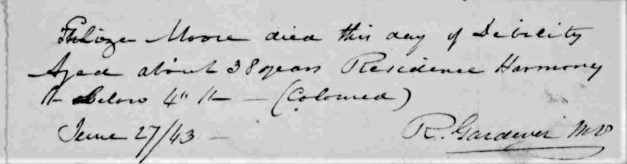 Eliza Moore died this day of Debility
Aged about 38 years Residence Harmony
St below 4th St — (Coloured)
June 27/43 — R. Gardener MD